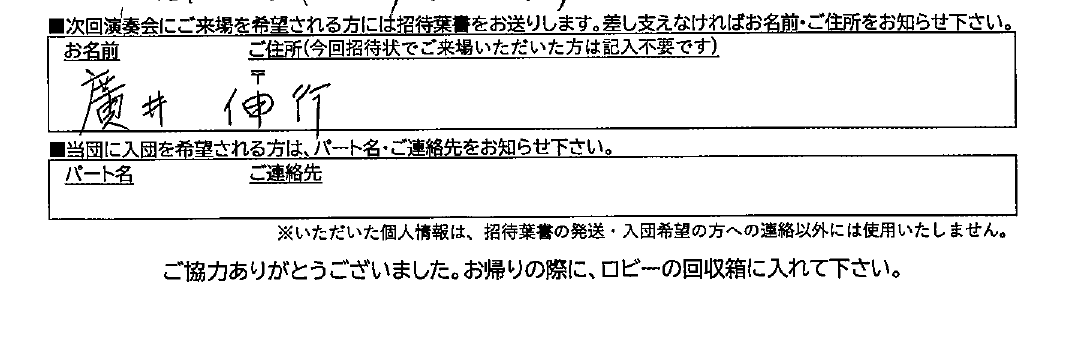 ■次回演奏会にご来場を希望される方には招待葉書をお送りします。差し支えなければお名前・ご住所をお知らせ下さい。
お名前 ご住所(今回招待状でご来場いただいた方は記入不要です)
〒
廣井 伸行
■当団に入団を希望される方は、パート名・ご連絡先をお知らせ下さい。
パート名 ご連絡先
※いただいた個人情報は、招待葉書の発送・入団希望の方への連絡以外には使用いたしません。
ご協力ありがとうございました。お帰りの際に、ロビーの回収箱に入れて下さい。